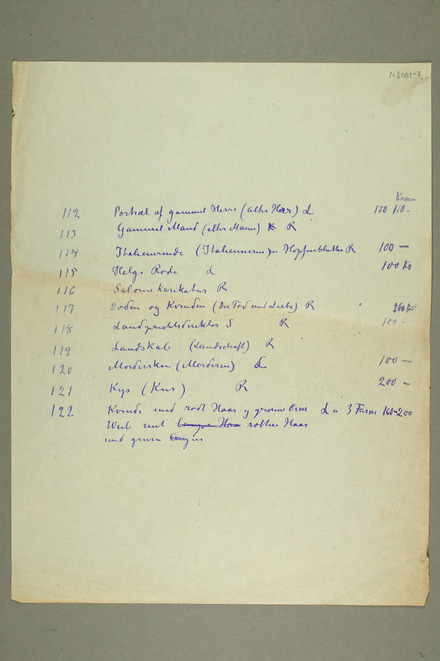 Kronen
112 Portræt af gammel Herre (alter Herr) L 150 110 -
113 Gammel Mand (alter Mann) R
114 Italienerinde (Italienerin R 100 —
115 Helge Rode L 100 Kr
116 Salome Karikatur R
117 Døden og Kvinden (Der Tod und Liebe) R "
118 Landgerichtsdirektor S R 100 —
119 Landskab (Landschaft) R
120 Mordersken (Mörderin) L 100 —
121 Kys (Kus) R 200 —
122 Kvinde med rødt Haar og grønne L 3 Farver 160-200
Weib mit rothes Haar
und grünen